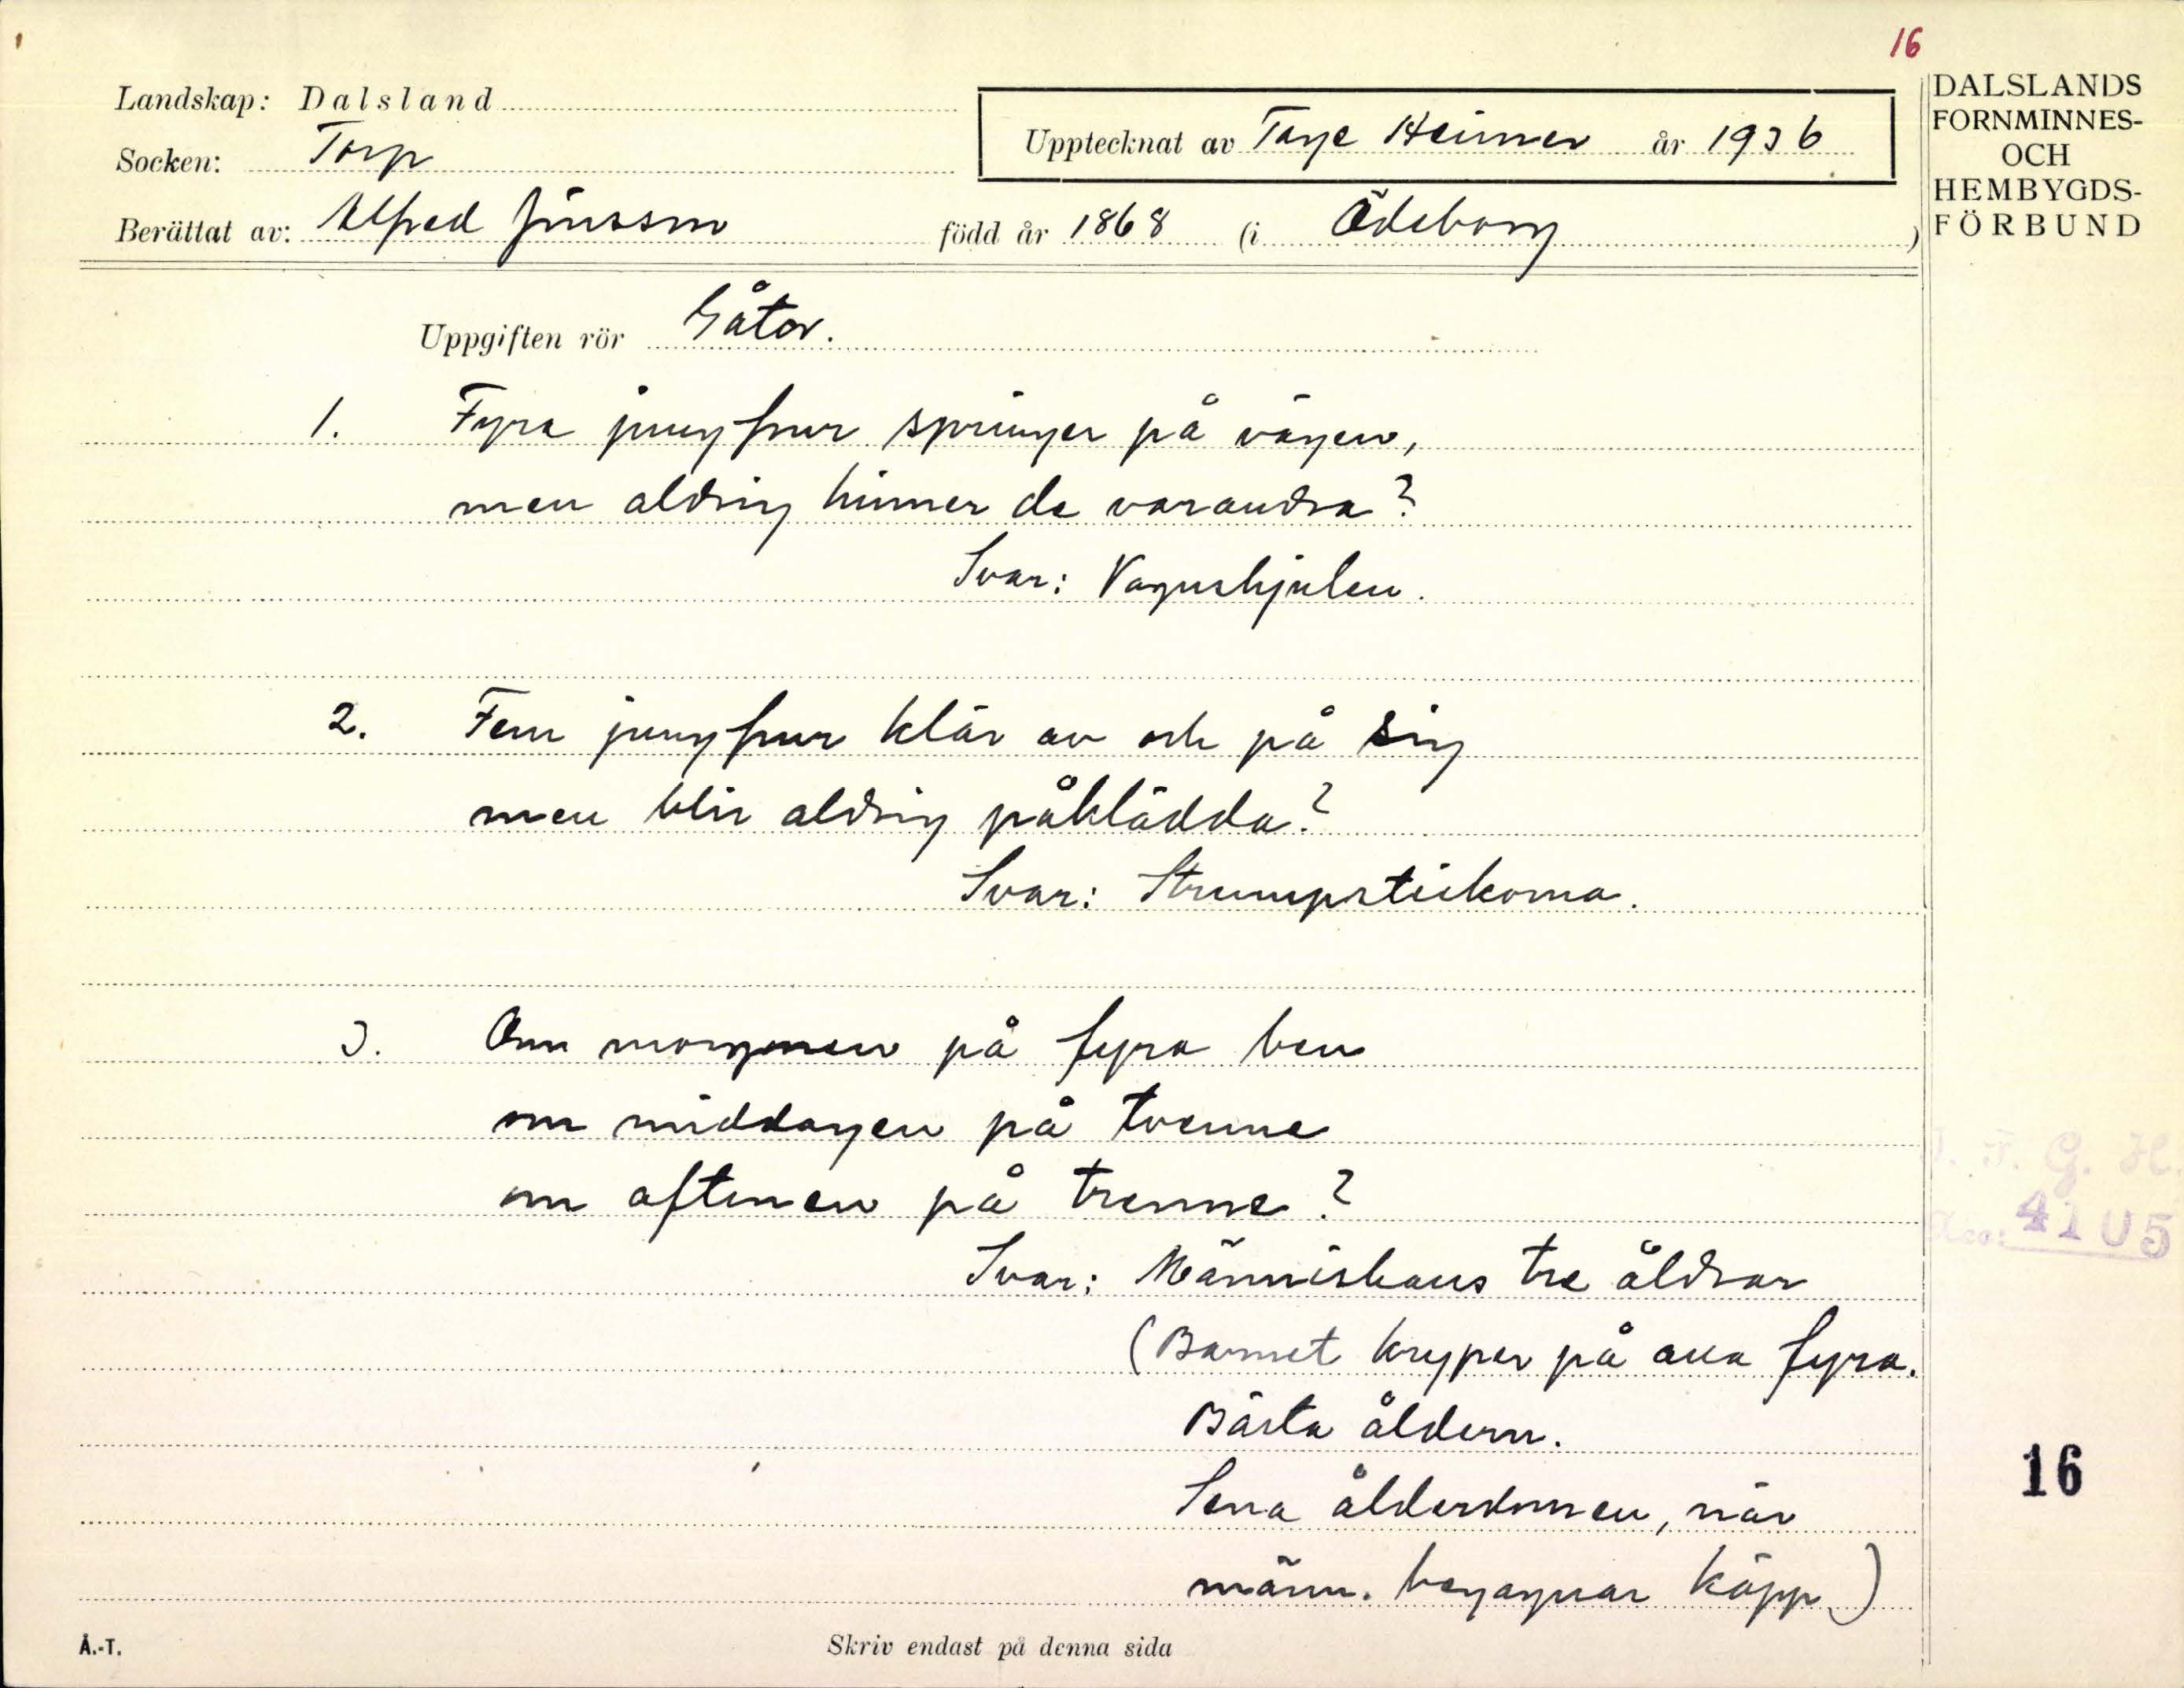 16
Landskap: Dalsland
Socken: Torp
Upptecknat av Tage Heimer år 1936
Berättat av: Alfred Jönsson född år 1868 (i Ödeborg)
DALSLANDS
FORNMINNES-
OCH
HEMBYGDS-
FÖRBUND
Uppgiften rör Gåtor.
1. Fyra jungfrur springer på vägen,
men aldrig hinner de varandra?
Svar: Vagnshjulen.
2. Fem jungfrur klär av och på sig
men blir aldrig påklädda?
Svar: Strumpstickorna.
3. Om morgonen på fyra ben
om middagen på tvenne
om aftonen på trenne?
Svar: Människans tre åldrar
(Barnet kryper på alla fyra.
Bästa åldern.
Sena ålderdomen, när
männ. begagnar käpp)
G. H.
4105
16
Å.-T.
Skriv endast på denna sida